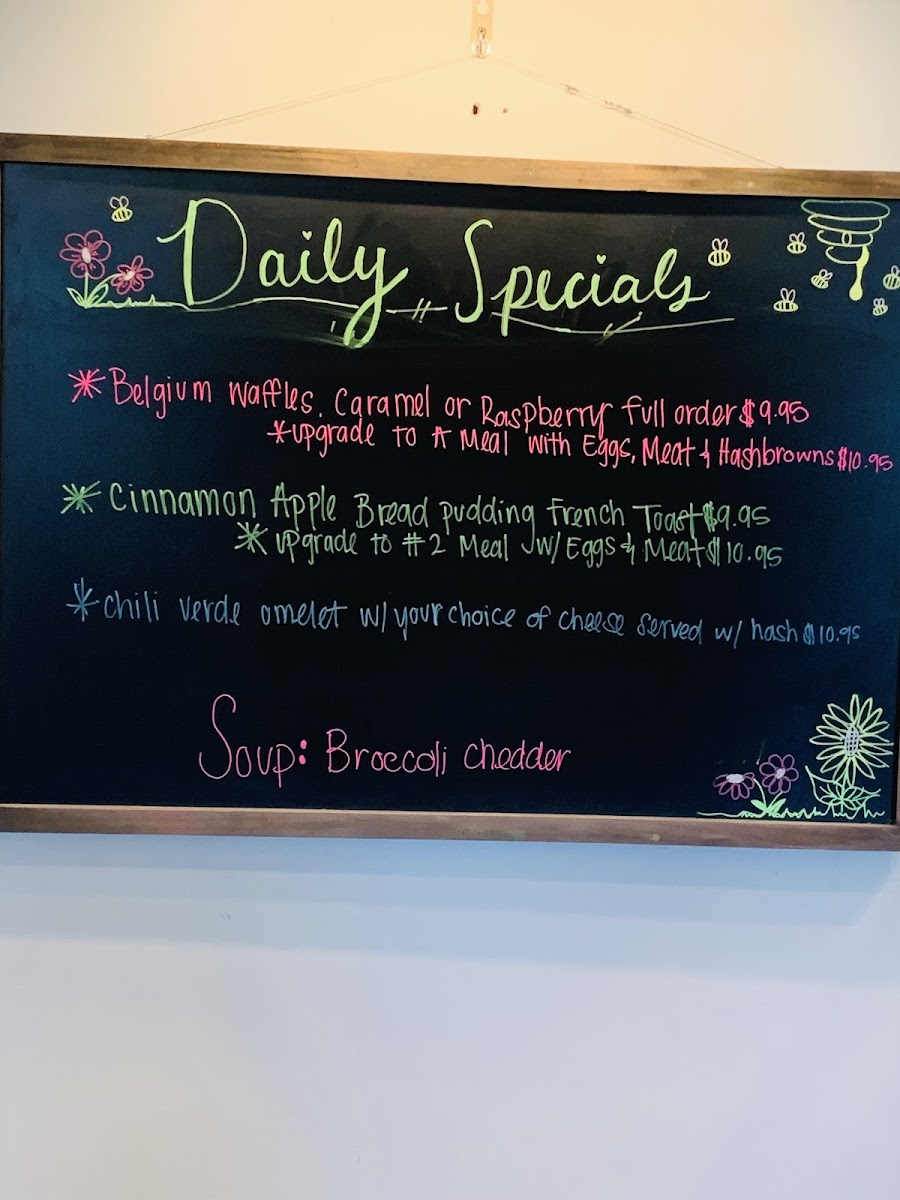 Daily Specials
* Belgium Waffles. Caramel or Raspberry full order $9.95
* upgrade to A Meal with Eggs, Meat & Hashbrowns $10.95
* Cinnamon Apple Bread pudding French Toast $9.95
* upgrade to #2 Meal w/ Eggs & Meat $10.95
* chili verde omelet w/ your choice of cheese served w/ hash $10.95
Soup: Broccoli chedder